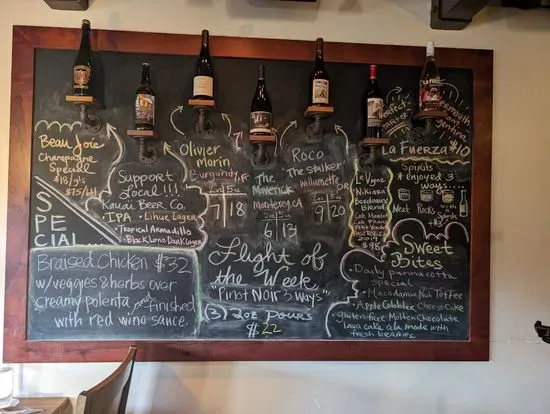 Beau Joie
Champagne
Special
$13/gls
$75/btl
SPECIAL
Braised Chicken $32
w/ veggies & herbs over
creamy polenta and finished
with red wine sauce.
Support
Local!!!
Kauai Beer Co.
• IPA • Lihue Lager
• Tropical Armadillo
• Black Limo Dark Lager
Olivier
Morin
Burgundy, Fr
2oz 5oz
7 18
The
Maverick
Monterey, Ca
2oz 5oz
6 13
Roco
"The Stalker"
Willamette, OR
2oz 5oz
9 20
Flight of
the Week
"Pinot Noir 3 ways"
(3) 2oz pours
$22
Le Vigne
Nikiara
Bordeaux
Blend
Cab, Merlot
Cab Franc
Petit Verdot
Paso Robles
$98
Perfect
La Fuerza $10
Spirits
* Enjoyed 3
ways...
Neat Rocks with
Splash
Sweet
Bites
• Daily pannacotta
special
• Macadamia Nut Toffee
• Apple Cobbler Cheesecake
• gluten-free Molten Chocolate
Lava cake à la mode with
fresh berries